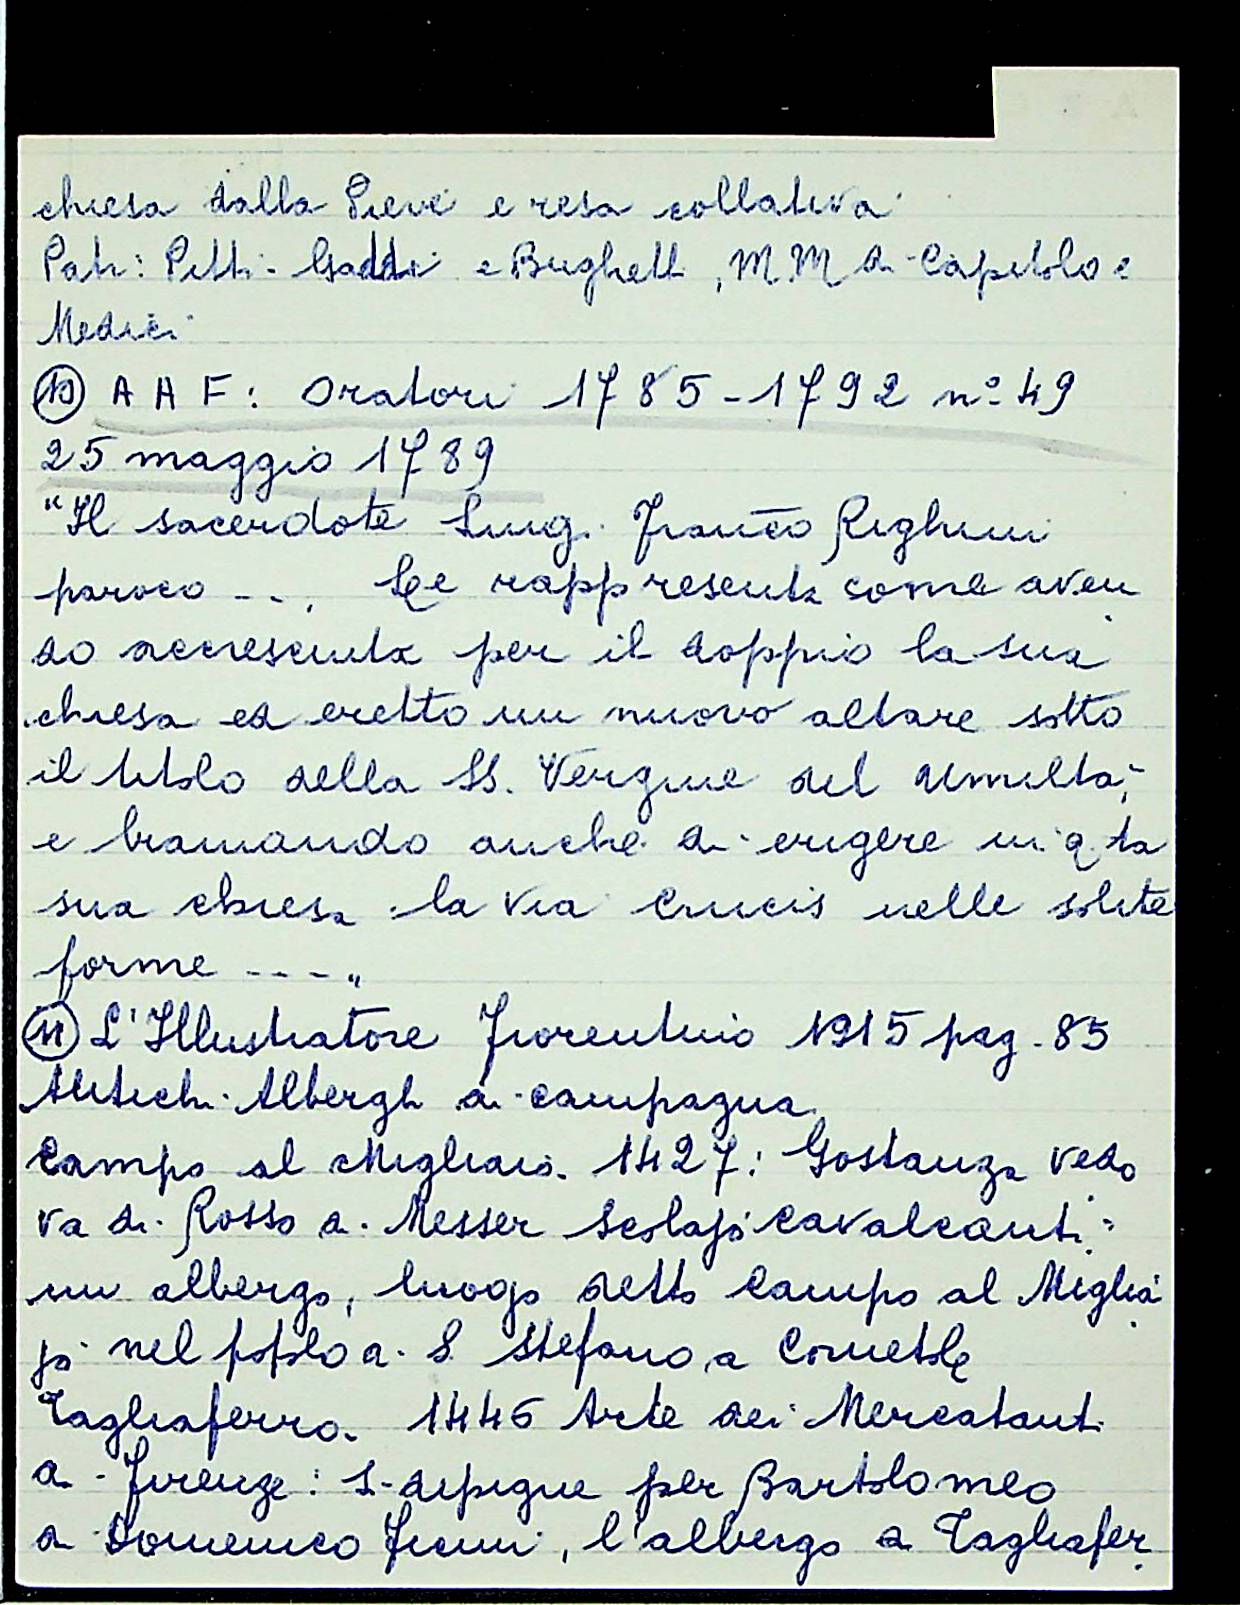 chiesa dalla Pieve e resa collativa
Patr: Pitti-Gaddi e Bughett, MM di Capitolo e
Medici
⑩ AAF: Oratori 1785-1792 n° 49
25 maggio 1789
"Il sacerdote Luig. Franco Righini
paroco ---. Le rappresenta come aven
do accresciuta per il doppio la sua
chiesa ed eretto un nuovo altare sotto
il titolo della SS. Vergine del Umiltà;
e bramando anche di erigere in q.ta
sua chiesa la via Crucis nelle solite
forme ----"
⑪ L'Illustratore Fiorentino 1915 pag. 85
Antichi Alberghi di campagna.
Campo al Migliaio. 1427: Gostanza vedo
va di Rosso di Messer Scolajo Cavalcanti:
un albergo, luogo detto Campo al Miglia
jo nel popolo di S. Stefano a Cornetole
Tagliaferro. 1446 Arte dei Mercatanti
di Firenze: Si dipigne per Bartolomeo
di Domenico, l'albergo a Tagliafer